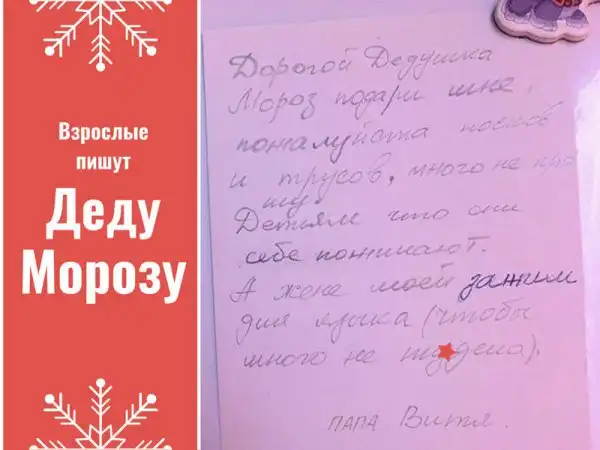 Взрослые
пишут
Деду
Морозу
Дорогой Дедушка
Мороз подари мне,
пожалуйста носков
и трусов, много не про
шу.
Детям что они
себе пожелают.
А жене моей зажим
для языка (чтобы
много не
ПАПА Витя.